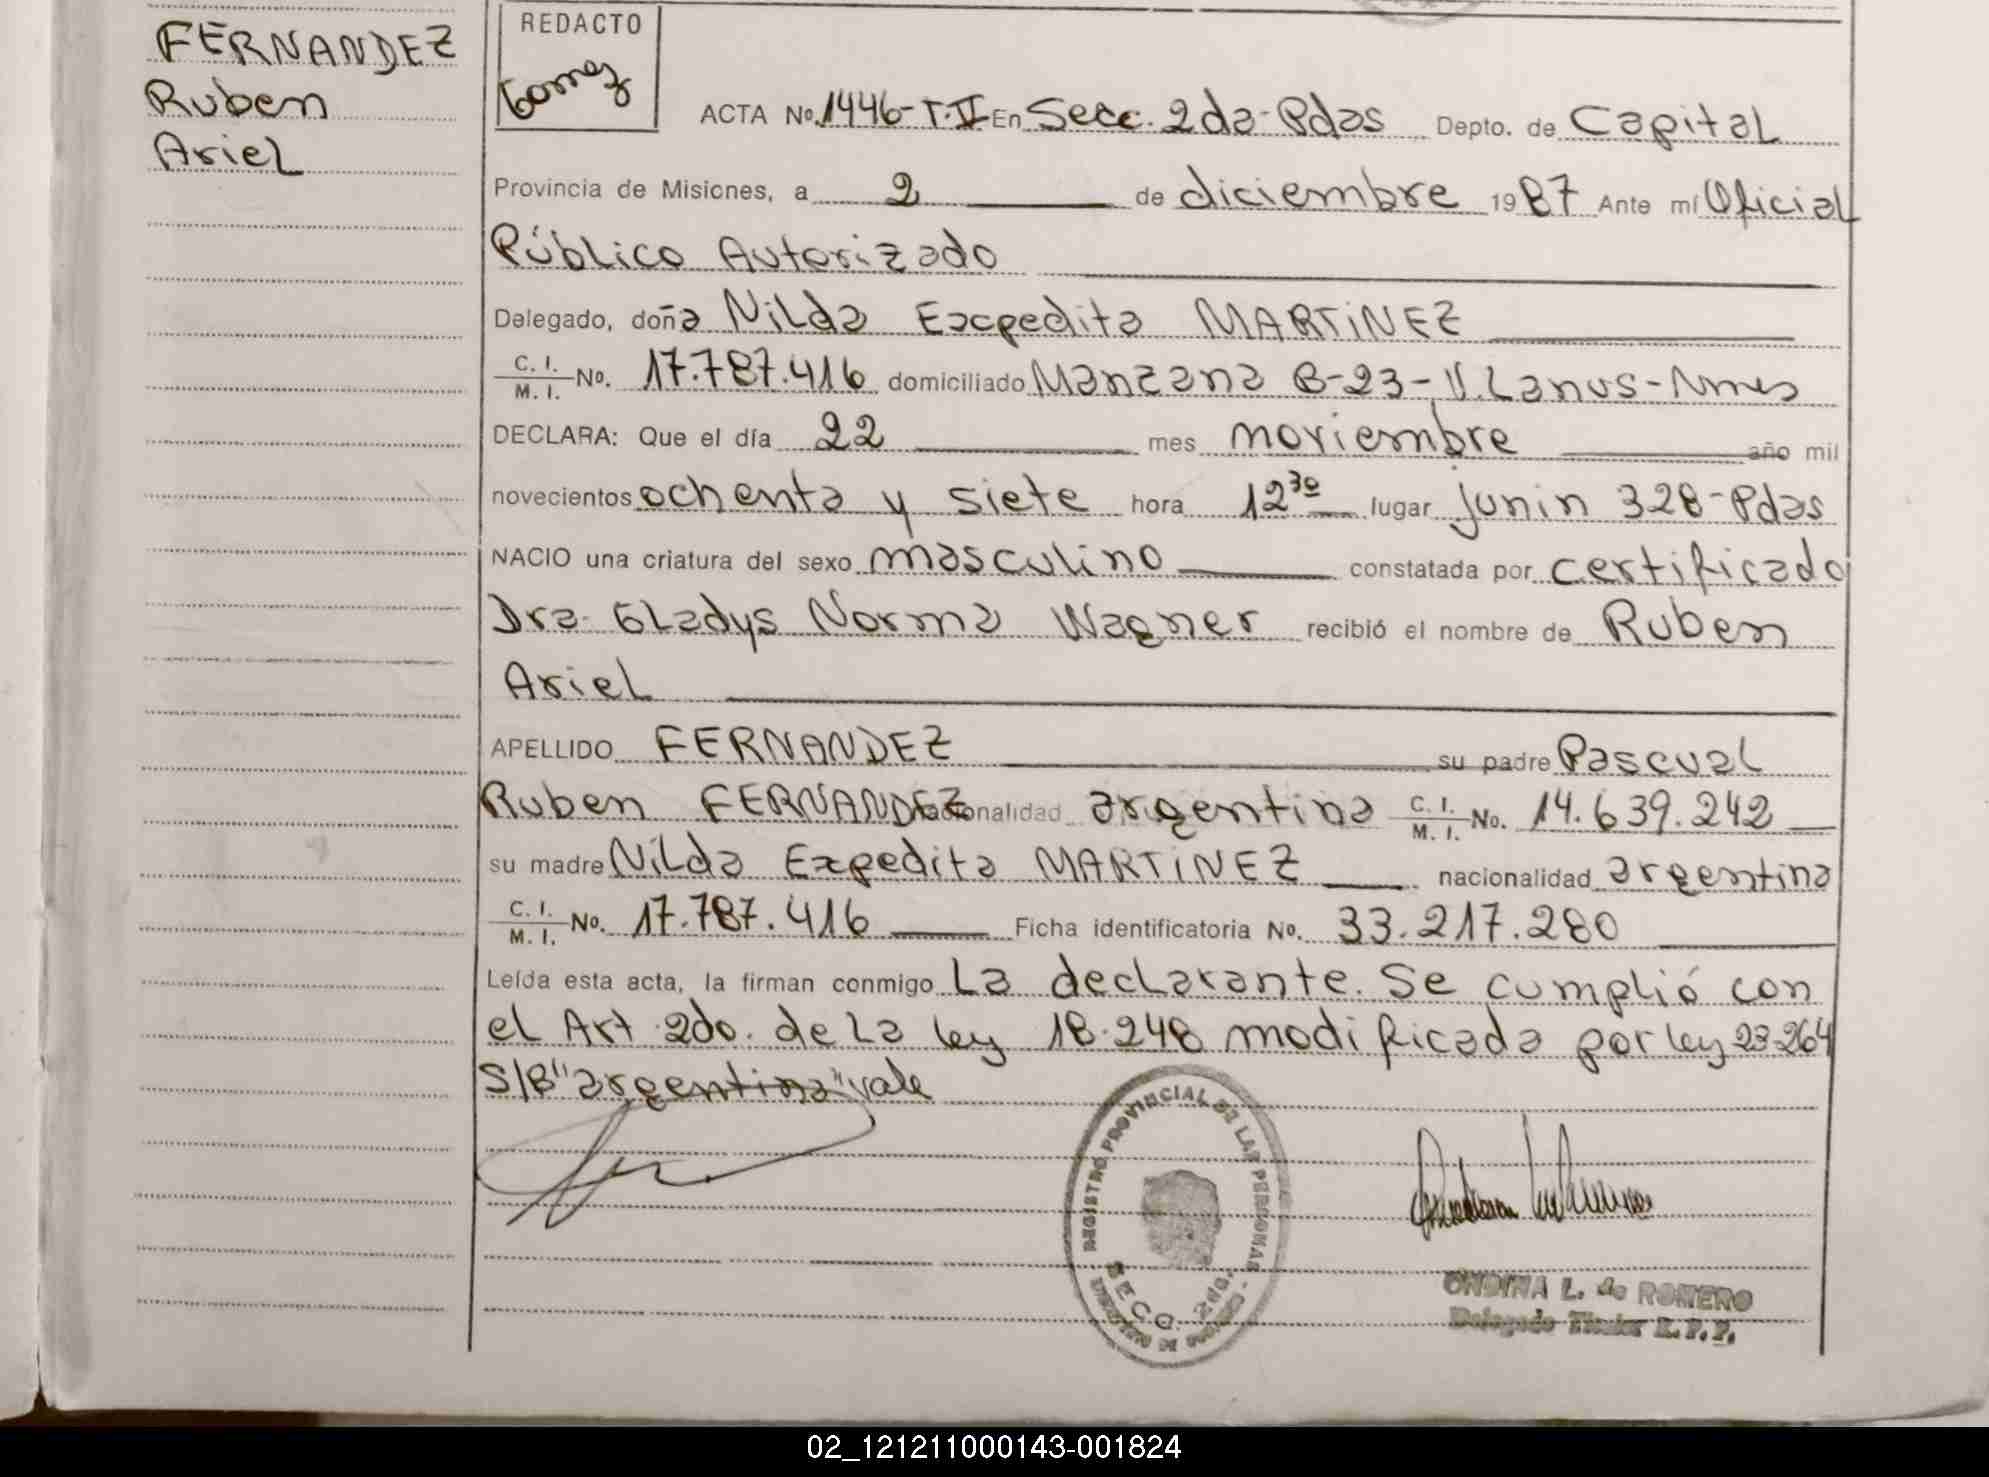 FERNANDEZ
Ruben
Ariel
REDACTO
Gomez
ACTA No. 1446-T.II En Secc. 2da-Pdas Depto. de Capital
Provincia de Misiones, a 2 de diciembre 1987 Ante mí Oficial
Público Autorizado
Delegado, doña Nilda Expedita MARTiNEZ
C. I.
M. I. No. 17.787.416 domiciliado Manzana B-23-V.Lanus-Nmes
DECLARA: Que el día 22 mes noviembre año mil
novecientos ochenta y siete hora 12³⁰ lugar Junin 328-Pdas
NACIO una criatura del sexo masculino constatada por certificado
Dra. Gladys Norma Wagner recibió el nombre de Ruben
Ariel
APELLIDO FERNANDEZ su padre Pascual
Ruben FERNANDEZ nacionalidad argentina C. I. M. I. No. 14.639.242
su madre Nilda Expedita MARTiNEZ nacionalidad argentina
C. I.
M. I. No. 17.787.416 Ficha identificatoria No. 33.217.280
Leída esta acta, la firman conmigo La declarante. Se cumplió con
el Art 2do. de la ley 18.248 modificada por ley 23.264
S/B"argentina"vale
REGISTRO PROVINCIAL DE LAS PERSONAS
SECC. 2da.
MINISTERIO DE GOBIERNO
ONDINA L. de ROMERO
Delegado Titular R. P. P.
02_121211000143-001824